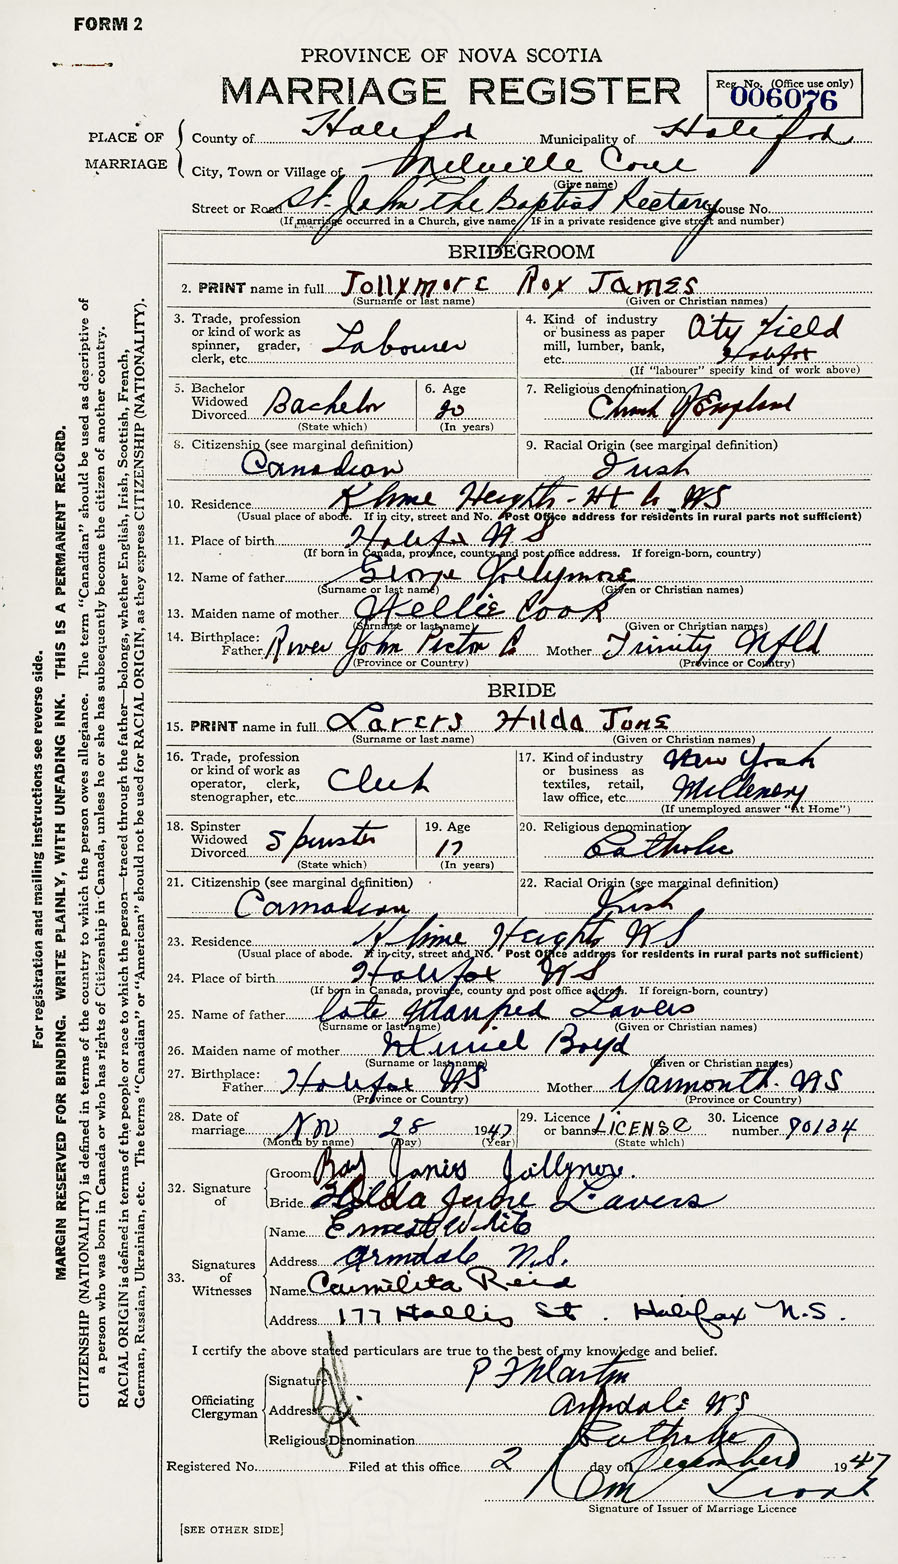 FORM 2
PROVINCE OF NOVA SCOTIA
MARRIAGE REGISTER
Reg. No. (Office use only)
006076
PLACE OF MARRIAGE
County of Halifax Municipality of Halifax
City, Town or Village of Melville Cove
(Give name)
Street or Road St. John The Baptist Rectory House No.
(If marriage occurred in a Church, give name. If in a private residence give street and number)
BRIDEGROOM
2. PRINT name in full Jollymore Roy James
(Surname or last name) (Given or Christian names)
3. Trade, profession or kind of work as spinner, grader, clerk, etc. Labourer
4. Kind of industry or business as paper mill, lumber, bank, etc. City Field Halifax
(If "labourer" specify kind of work above)
5. Bachelor Widowed Divorced Bachelor
(State which)
6. Age 20
(In years)
7. Religious denomination Church of England
8. Citizenship (see marginal definition) Canadian
9. Racial Origin (see marginal definition) Irish
10. Residence Kline Heights - Hx Co NS
(Usual place of abode. If in city, street and No. Post Office address for residents in rural parts not sufficient)
11. Place of birth Halifax NS
(If born in Canada, province, county and post office address. If foreign-born, country)
12. Name of father George Jollymore
(Surname or last name) (Given or Christian names)
13. Maiden name of mother Nellie Cook
(Surname or last name) (Given or Christian names)
14. Birthplace: Father River John Pictou C Mother Trinity Nfld
(Province or Country) (Province or Country)
BRIDE
15. PRINT name in full Lavers Hilda June
(Surname or last name) (Given or Christian names)
16. Trade, profession or kind of work as operator, clerk, stenographer, etc. Clerk
17. Kind of industry or business as textiles, retail, law office, etc. New York Millinery
(If unemployed answer "At Home")
18. Spinster Widowed Divorced Spinster
(State which)
19. Age 17
(In years)
20. Religious denomination Catholic
21. Citizenship (see marginal definition) Canadian
22. Racial Origin (see marginal definition) Irish
23. Residence Kline Heights NS
(Usual place of abode. If in city, street and No. Post Office address for residents in rural parts not sufficient)
24. Place of birth Halifax NS
(If born in Canada, province, county and post office address. If foreign-born, country)
25. Name of father late Manfred Lavers
(Surname or last name) (Given or Christian names)
26. Maiden name of mother Muriel Boyd
(Surname or last name) (Given or Christian names)
27. Birthplace: Father Halifax NS Mother Yarmouth NS
(Province or Country) (Province or Country)
28. Date of marriage Nov 28 1947
(Month by name) (Day) (Year)
29. Licence or banns LICENSE
(State which)
30. Licence number 90134
32. Signature of
Groom Roy James Jollymore.
Bride Hilda June Lavers
33. Signatures of Witnesses
Name Ernest White
Address Armdale N.S.
Name Carmilita Reid
Address 177 Hollis St. Halifax N.S.
I certify the above stated particulars are true to the best of my knowledge and belief.
Officiating Clergyman
Signature P F Martin
Address Armdale NS
Religious Denomination Catholic
Registered No. Filed at this office 2 day of December 1947
Signature of Issuer of Marriage Licence
[SEE OTHER SIDE]
For registration and mailing instructions see reverse side.
MARGIN RESERVED FOR BINDING. WRITE PLAINLY, WITH UNFADING INK. THIS IS A PERMANENT RECORD.
CITIZENSHIP (NATIONALITY) is defined in terms of the country to which the person owes allegiance. The term "Canadian" should be used as descriptive of
a person who was born in Canada or who has rights of Citizenship in Canada, unless he or she has subsequently become the citizen of another country.
RACIAL ORIGIN is defined in terms of the people or race to which the person—traced through the father—belongs, whether English, Irish, Scottish, French,
German, Russian, Ukrainian, etc. The terms "Canadian" or "American" should not be used for RACIAL ORIGIN, as they express CITIZENSHIP (NATIONALITY).